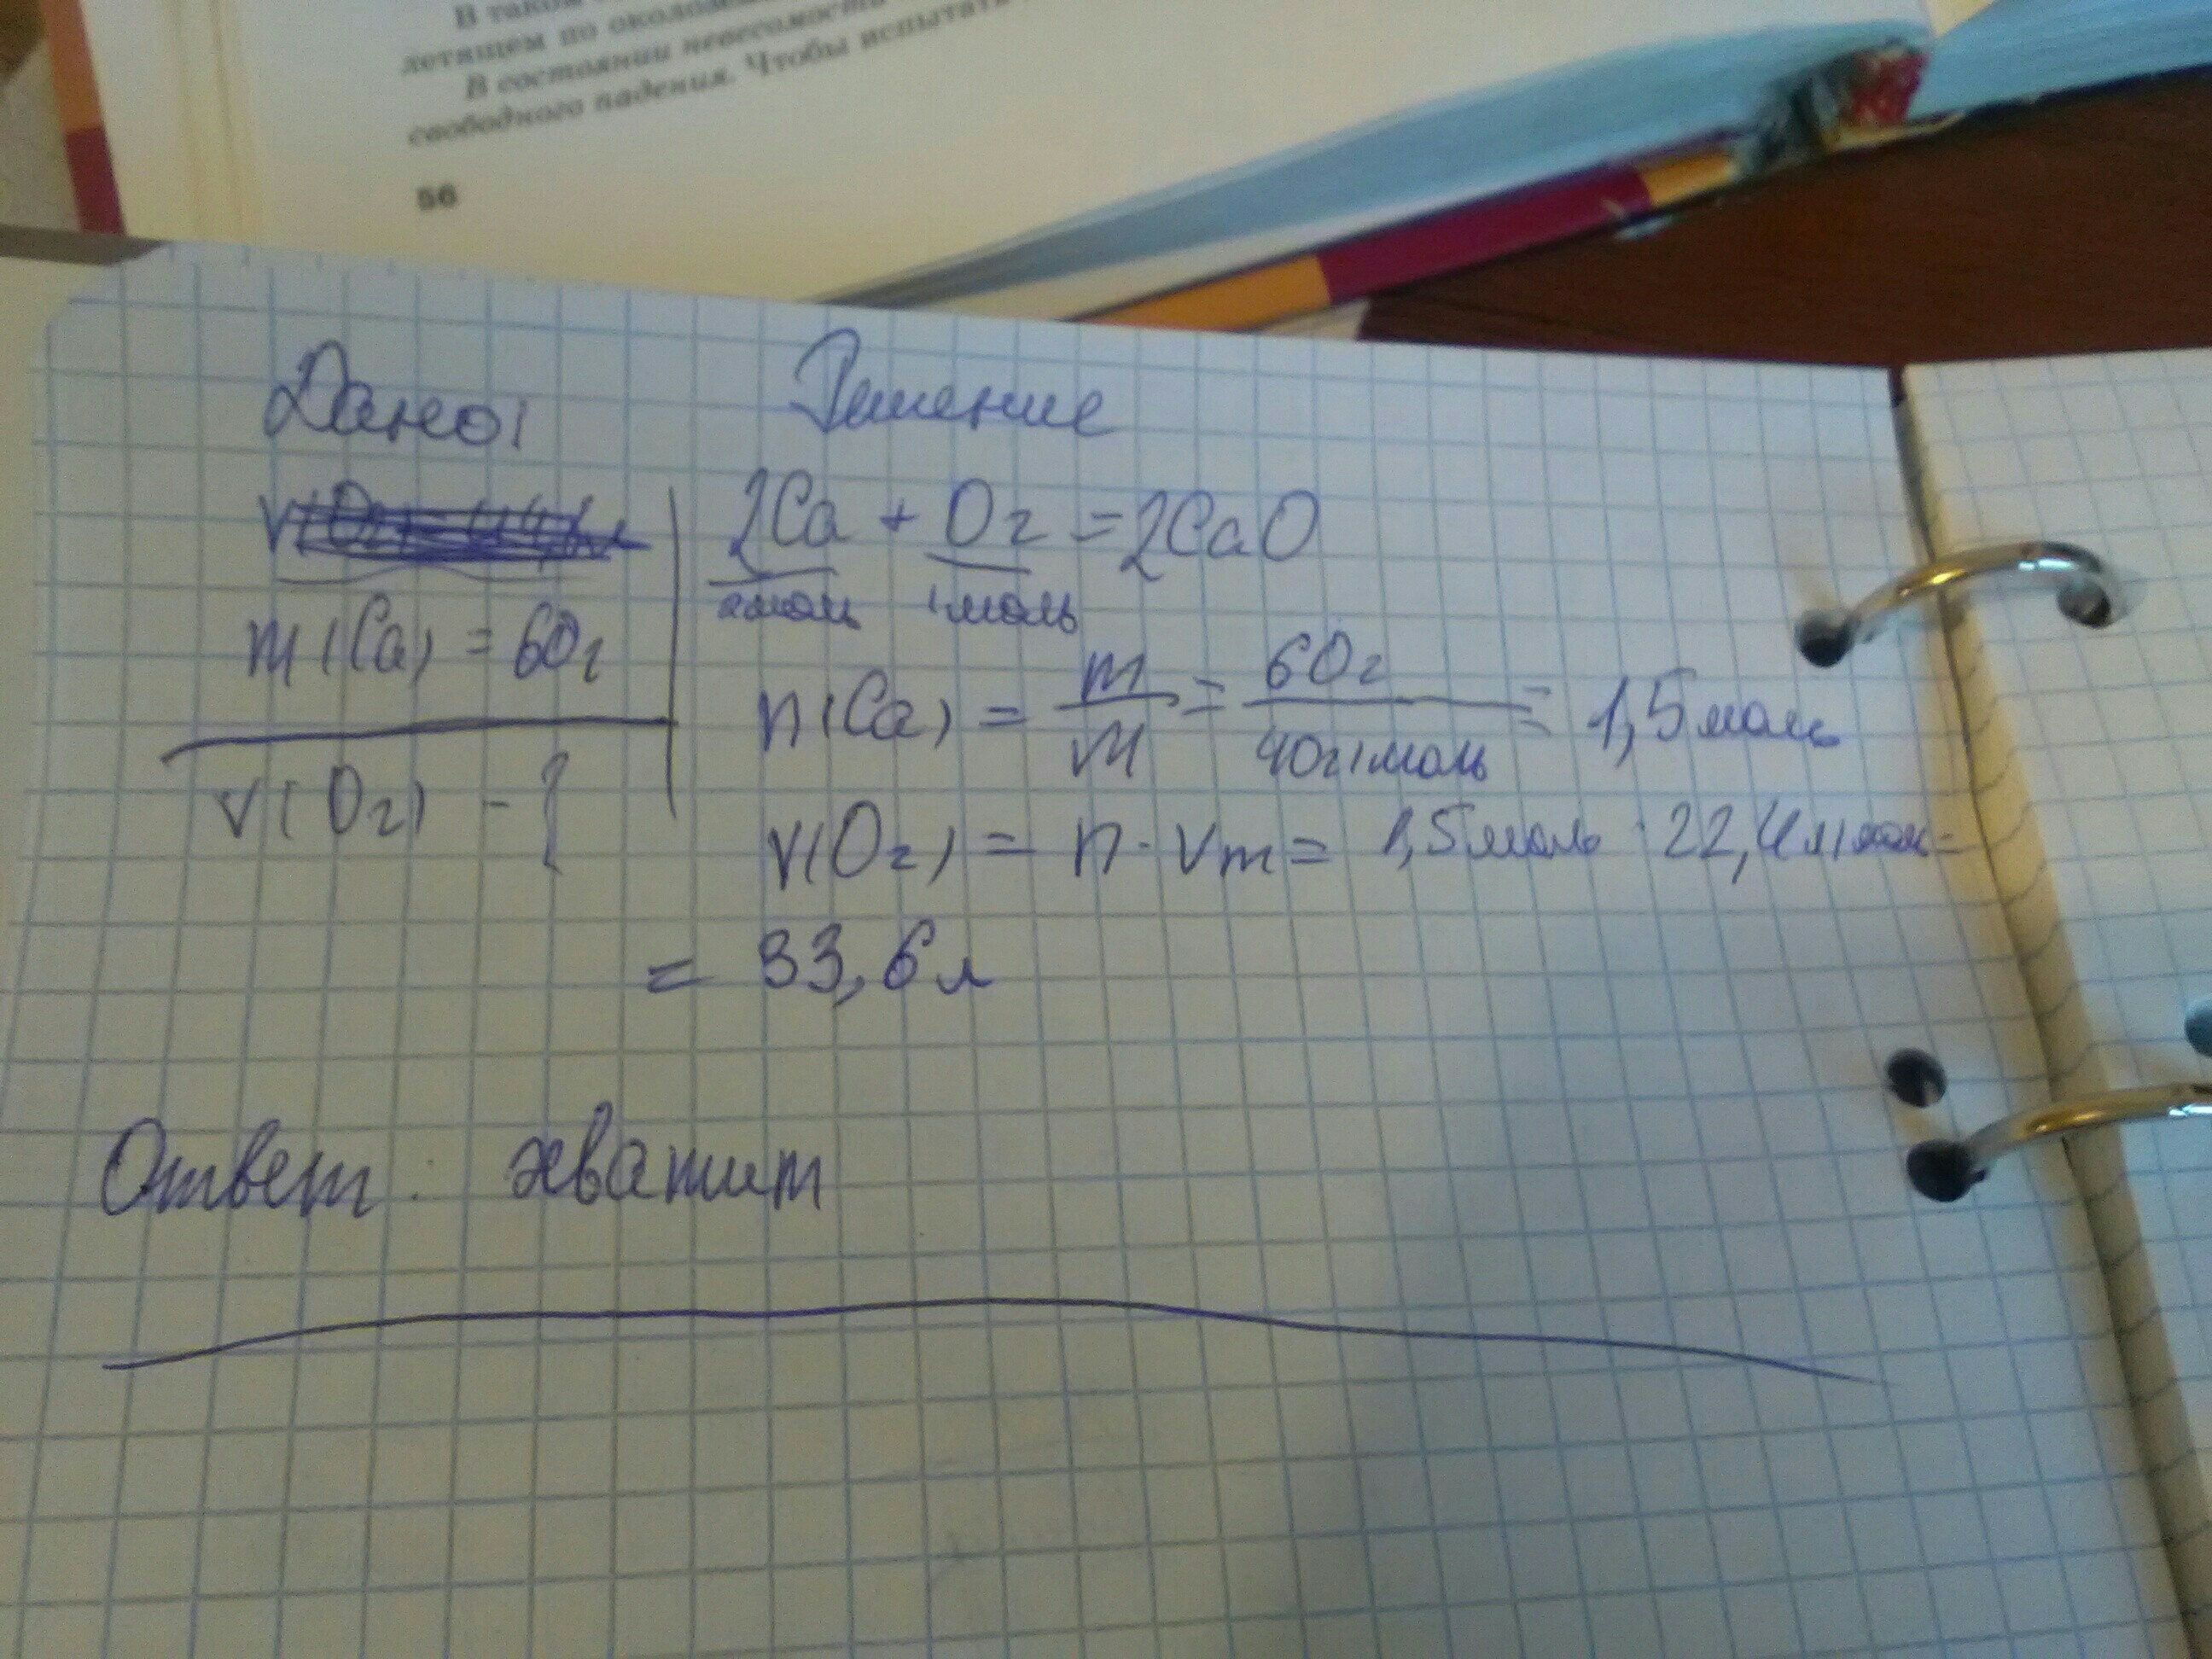 В таком
летящем по околозем
В состоянии невесомости
свободного падения. Чтобы испытать
56
Дано: Решение
2Ca + O2 = 2CaO
2моль 1моль
m(Ca) = 60г
n(Ca) = m/M = 60г/40г/моль = 1,5моль
V(O2) - ?
V(O2) = n · Vm = 1,5моль · 22,4л/моль=
= 33,6л
Ответ: хватит